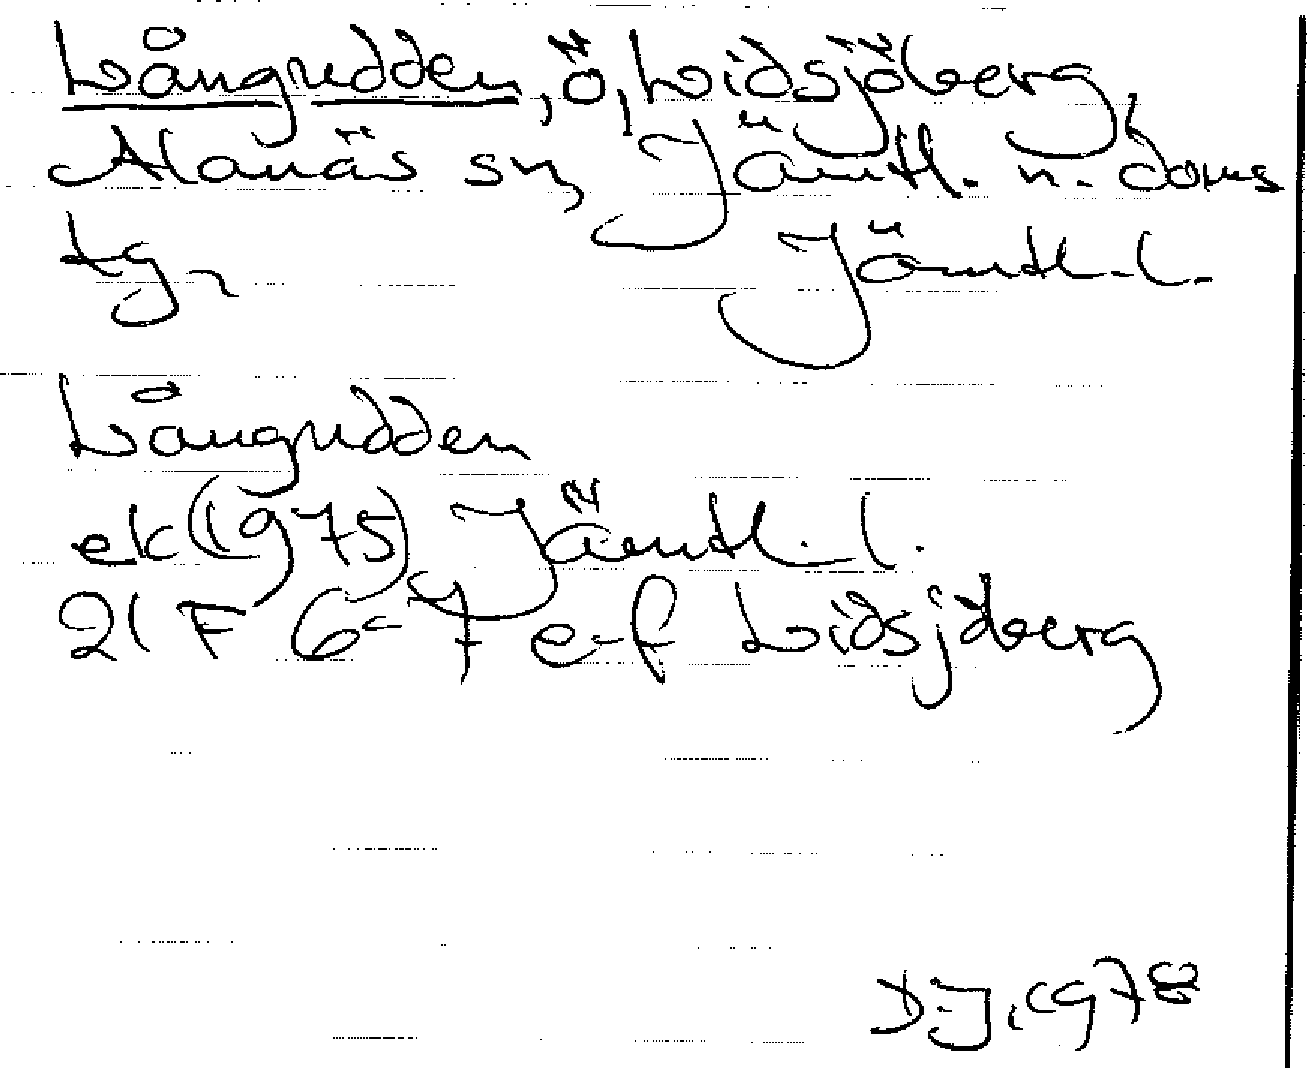 Långudden, ö, Lidsjöberg,
Alanäs sn, Jämtl. n. doms
tg, Jämtl. l.
Långudden
ek (1975) Jämtl. l.
21 F 6-7 e-f Lidsjöberg
D.J. 1978